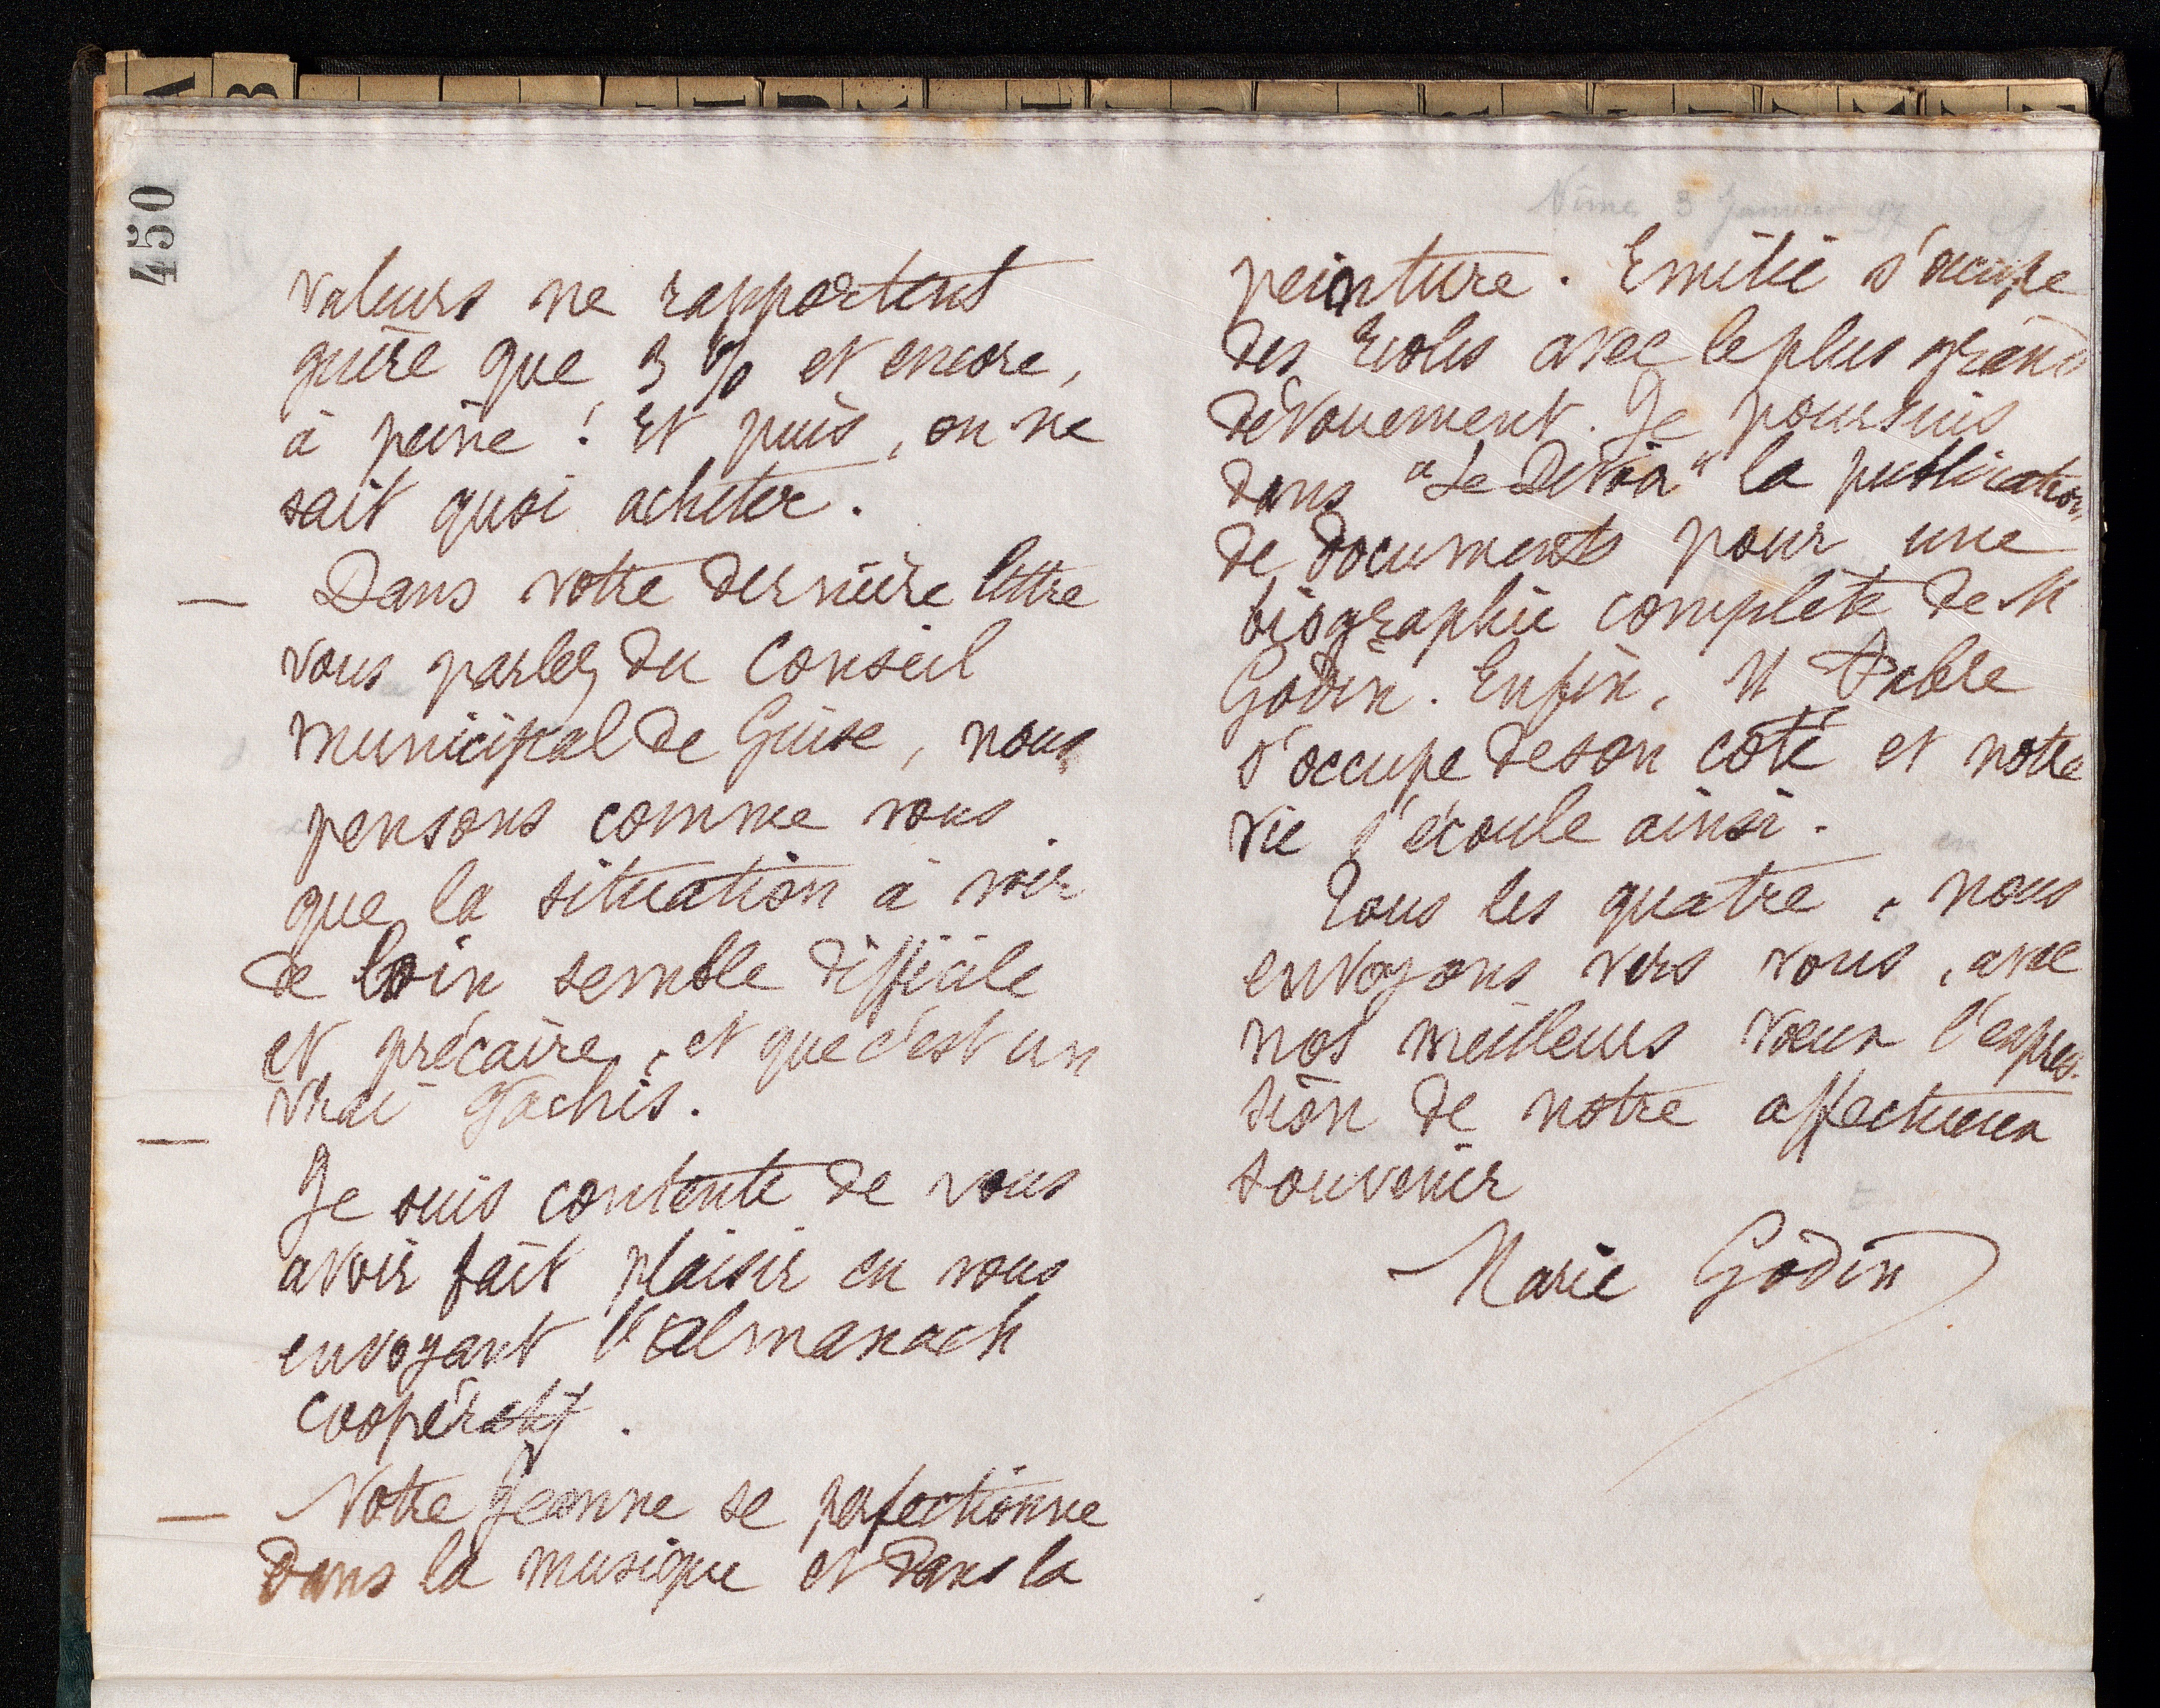 450
valeurs ne rapportent
guère que 3 % et encore,
à peine ! Et puis, on ne
sait quoi acheter.
— Dans votre dernière lettre
vous parlez du Conseil
municipal de Guise, nous
pensons comme vous
que la situation à voir
de loin semble difficile
et précaire, et que c'est un
vrai gâchis.
—
Je suis contente de vous
avoir fait plaisir en vous
envoyant l'almanach
coopératif.
— Notre Jeanne se perfectionne
dans la musique et dans la
Nîmes 3 Janvier 97
peinture. Emilie s'occupe
des Ecoles avec le plus grand
dévouement. Je poursuis
dans "Le Devoir" la publication
de documents pour une
biographie complète de M
Godin. Enfin, M Fabre
s'occupe de son côté et notre
vie s'écoule ainsi.
Tous les quatre, nous
envoyons vers vous, avec
nos meilleurs vœux l'expres-
sion de notre affectueux
souvenir
Marie Godin